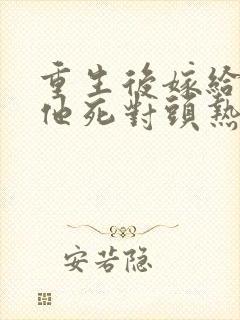 重生後嫁給
他死對頭熱
安若隐